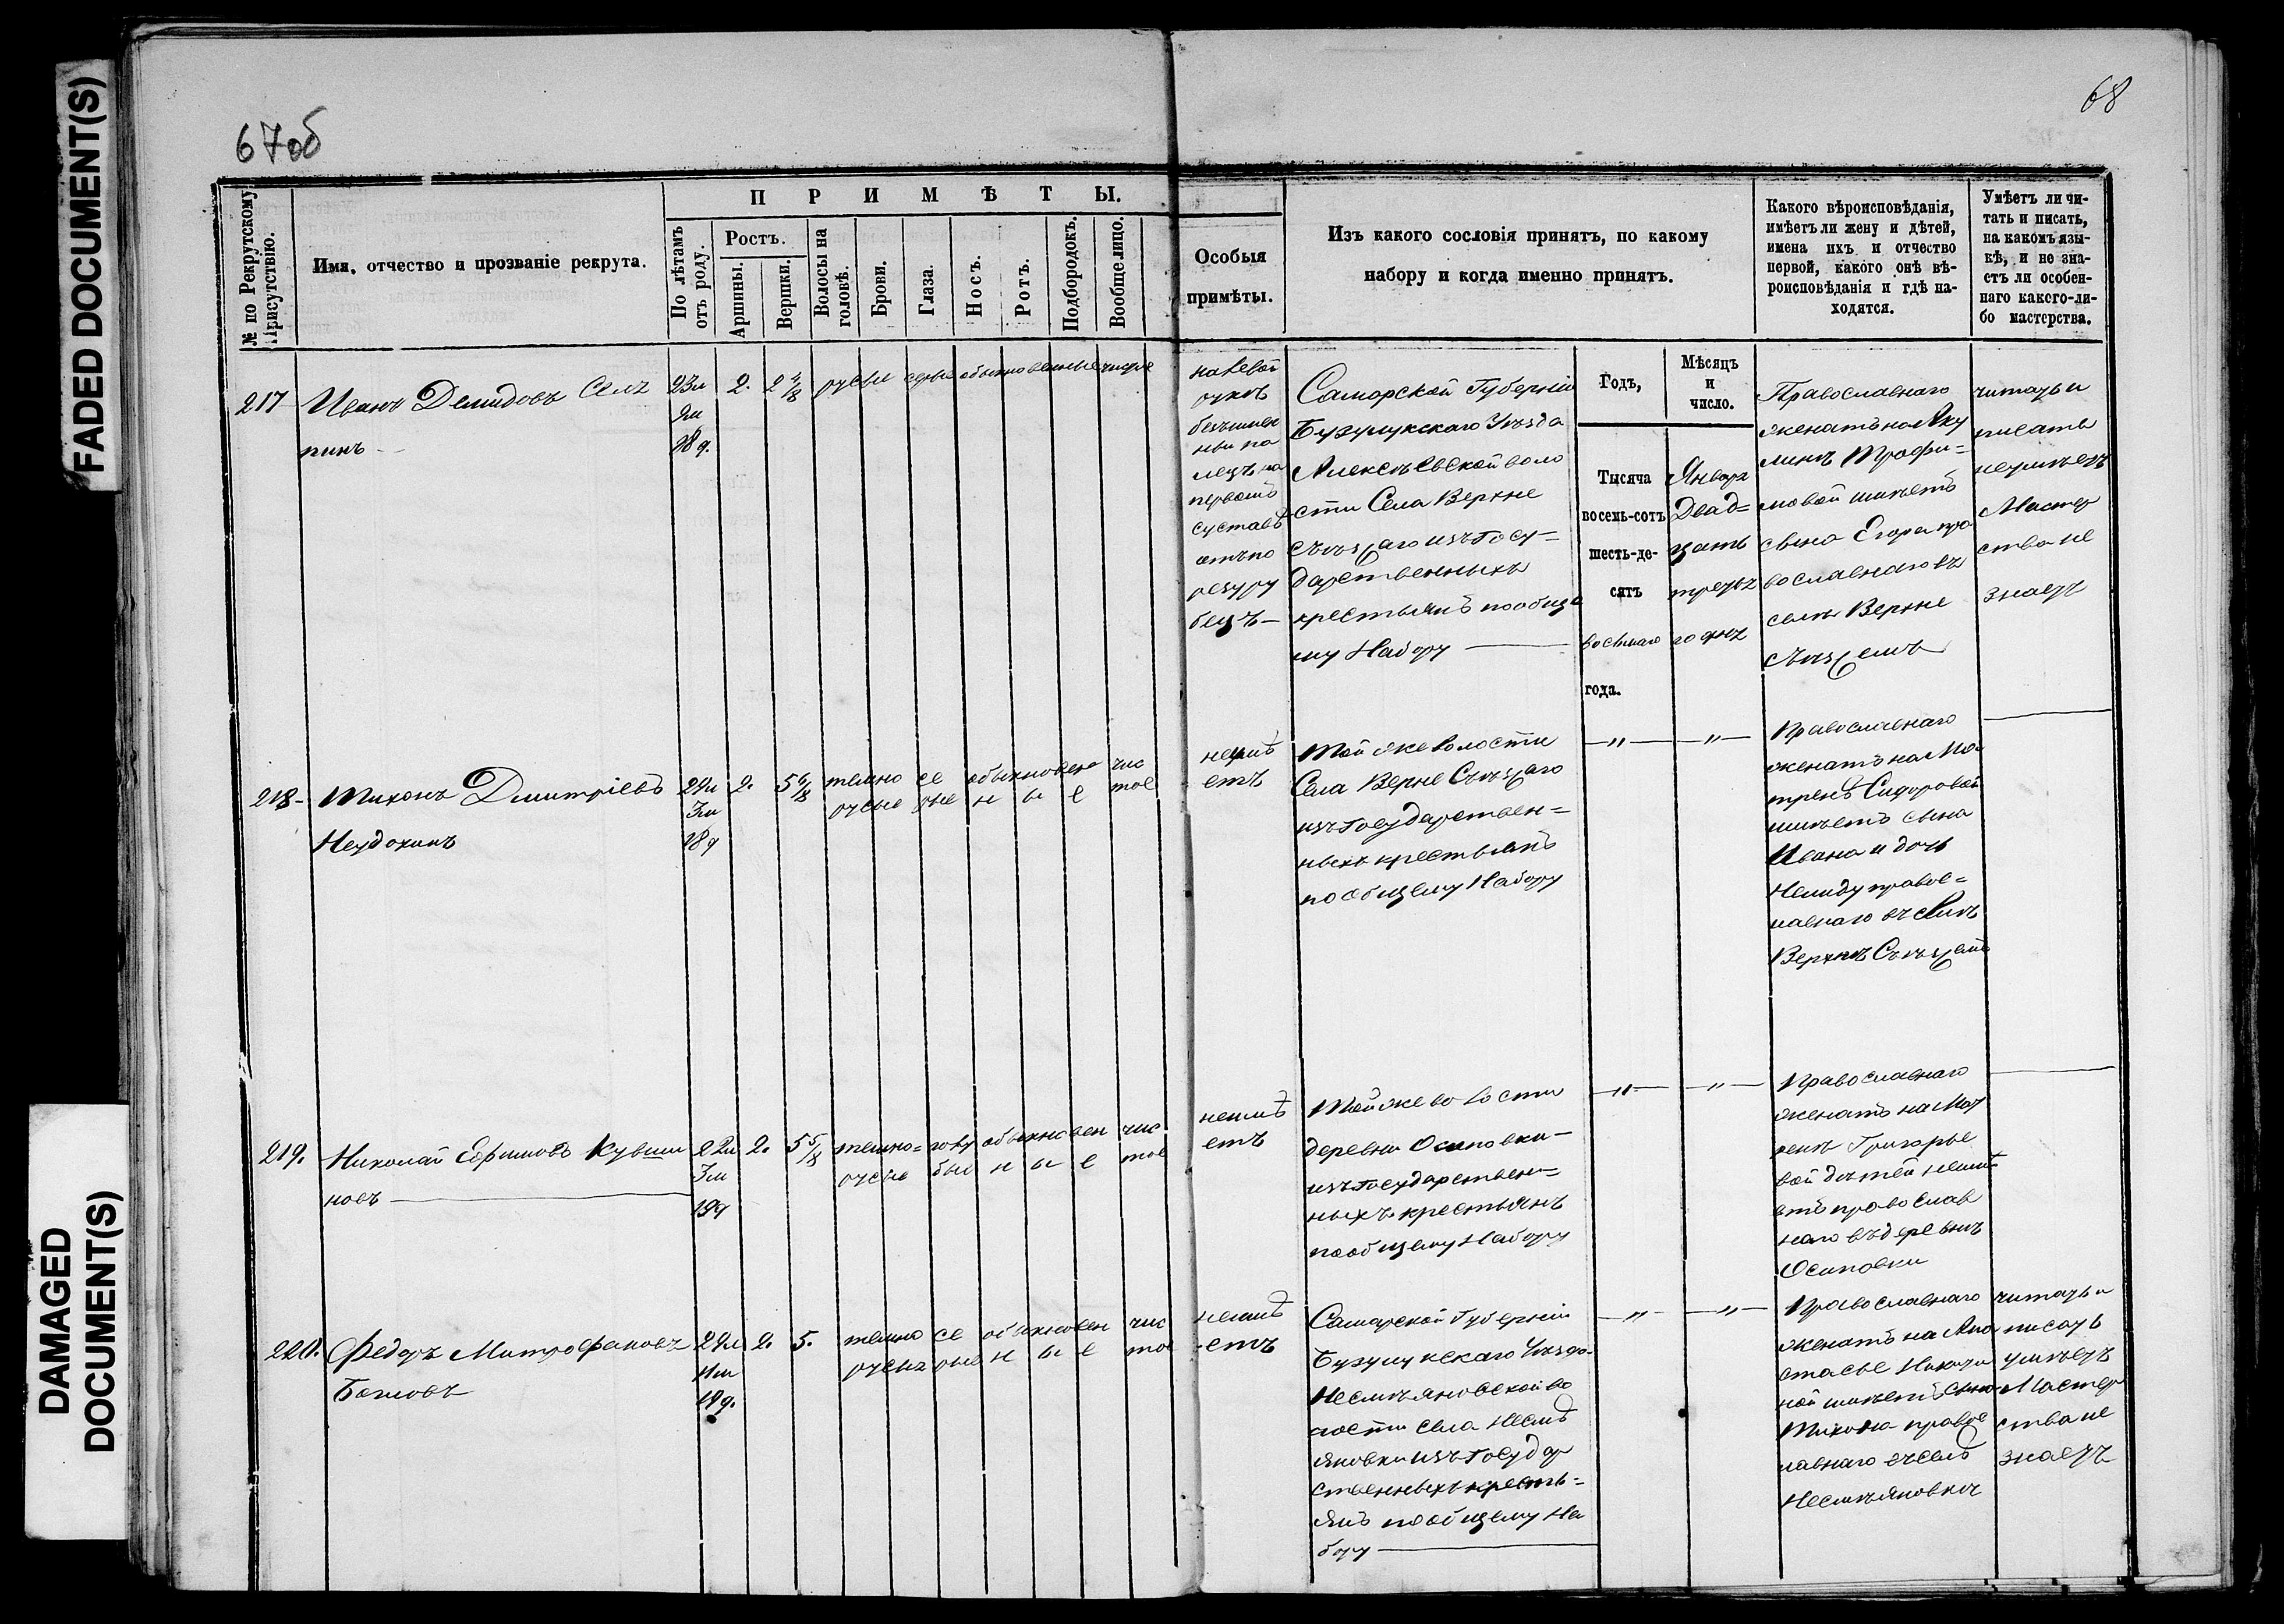 FADED DOCUMENT(S)
DAMAGED
DOCUMENT(S)
67об
68
№ по Рекрутскому
Присутствію.
Имя, отчество и прозваніе рекрута.
ПРИМѢТЫ.
По лѣтамъ
отъ роду.
Ростъ.
Аршины.
Вершки.
Волосы на
головѣ.
Брови.
Глаза.
Носъ.
Ротъ.
Подбородокъ.
Вообще лицо.
Особыя
примѣты.
Изъ какого сословія принятъ, по какому
набору и когда именно принятъ.
Какого вѣроисповѣданія,
имѣетъ ли жену и дѣтей,
имена ихъ и отчество
первой, какого онѣ вѣ-
роисповѣданія и гдѣ на-
ходятся.
Умѣетъ ли чи-
тать и писать,
на какомъ язы-
кѣ, и не зна-
етъ ли особен-
наго какого-ли-
бо мастерства.
217 Иванъ Демидовъ Сел
пинъ
23л
9м
28д.
2.
2 4/8
русы
серые
обыкновенные
чистое
на левой
рукѣ
безымен
ный па
лецъ на
первомъ
суставѣ
отъ по
резу ру
бецъ —
Самарской Губерніи
Бузулукскаго Уѣзда
Алексѣевской воло
сти Села Верхне
съѣзжаго изъ Госу=
дарственныхъ
крестьянъ по обще
му Набору
Годъ,
Мѣсяцъ
и
число.
Тысяча
восемь-сотъ
шесть-де-
сятъ
восьмаго
года.
Января
Двад=
цать
третьяго дня
Православнаго
женатъ на Аку
линѣ Трофи=
мовой имѣетъ
сына Егора пра
вославнаго въ
селѣ Верхне
съѣзжемъ
читать и
писать
неумѣетъ
Мастер
ства не
знаетъ
218- Тихонъ Дмитріевъ
Неудахинъ
24л
3м
28д
2.
5 6/8
темно
русые
се
рые
обыкновен
ные
чис
тое
неимѣ
етъ
Той же волости
Села Верне Съѣзжаго
изъ Государствен=
ныхъ крестьянъ
по общему Набору
—"—
—"—
Православнаго
женатъ на Ма
тренѣ Сидоровой
имѣетъ сына
Ивана и дочь
Немиду правос=
лавнаго въ селѣ
Верхнѣ Съѣзжемъ
219. Николай Ефимовъ Кувши
новъ
22л
3м
19д
2.
5 5/8
темно=
русые
голу
бые
обыкновен
ные
чис
тое
неимѣ
етъ
Той же волости
деревни Осиновки
изъ Государствен=
ныхъ крестьянъ
по общему Набору
—"—
—"—
Православнаго
женатъ на Мат
ренѣ Григорье
вой дѣтей неимѣ
етъ православ
наго въ деревнѣ
Осиновки
220. Федоръ Митрофановъ
Баловъ
24л
11м
19д.
2.
5.
темно
русые
се
рые
обыкновен
ные
чис
тое
неимѣ
етъ
Самарской Губерніи
Бузулукскаго Уѣзда
Несмѣяновской во
лости села Несмѣ
яновки изъ Государ
ственныхъ кресть=
янъ по общему На
бору
—"—
—"—
Православнаго
женатъ на Ана
стасье Никити
ной имѣетъ сына
Тихона правос
лавнаго въ селѣ
Несмѣяновки
читать и
писать
умѣетъ
Мастер
ства не
знаетъ